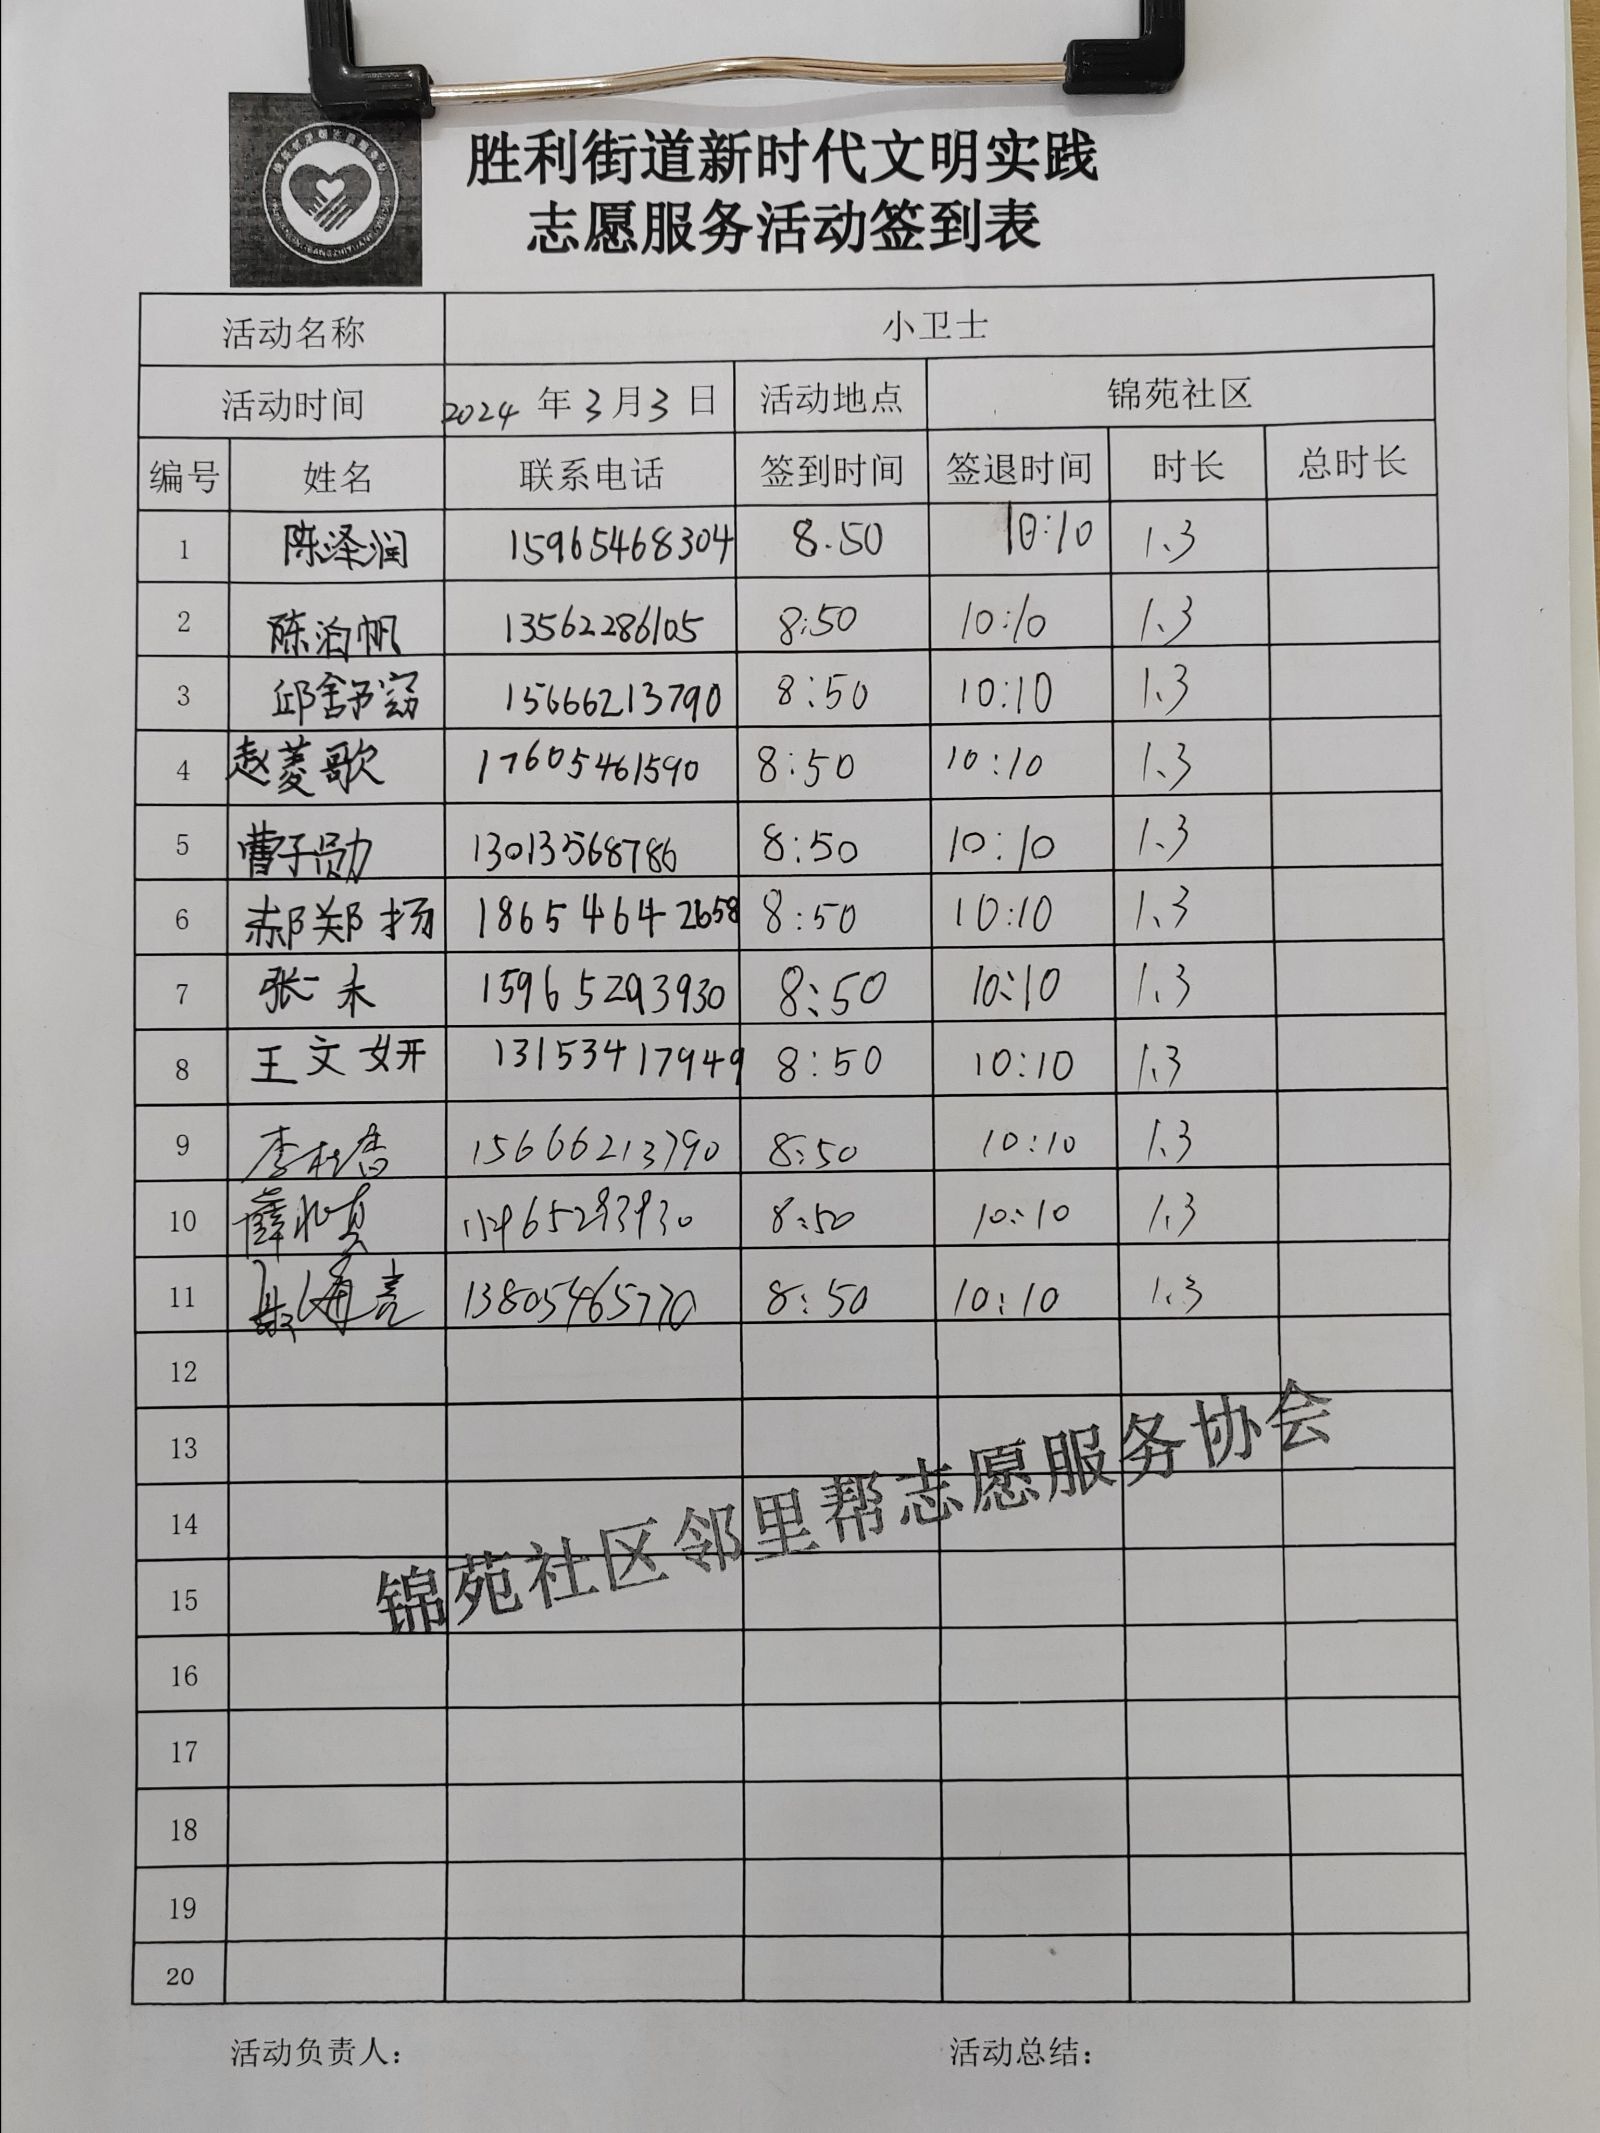 胜利街道新时代文明实践
志愿服务活动签到表
活动名称 小卫士
活动时间 2024 年 3 月 3 日 活动地点 锦苑社区
编号 姓名 联系电话 签到时间 签退时间 时长 总时长
1 陈泽润 15965468304 8.50 10:10 1.3
2 陈泊帆 13562286105 8:50 10:10 1.3
3 邱舒窈 15666213790 8:50 10:10 1.3
4 赵菱歌 17605461590 8:50 10:10 1.3
5 曹子勋 13013568786 8:50 10:10 1.3
6 郝郑扬 18654642658 8:50 10:10 1.3
7 张一禾 15965293930 8:50 10:10 1.3
8 王文妍 13153417949 8:50 10:10 1.3
9 李桂香 15666213790 8:50 10:10 1.3
10 薛 15965293930 8:50 10:10 1.3
11 13805465770 8:50 10:10 1.3
12
13
14
15
16
17
18
19
20
锦苑社区邻里帮志愿服务协会
活动负责人: 活动总结: